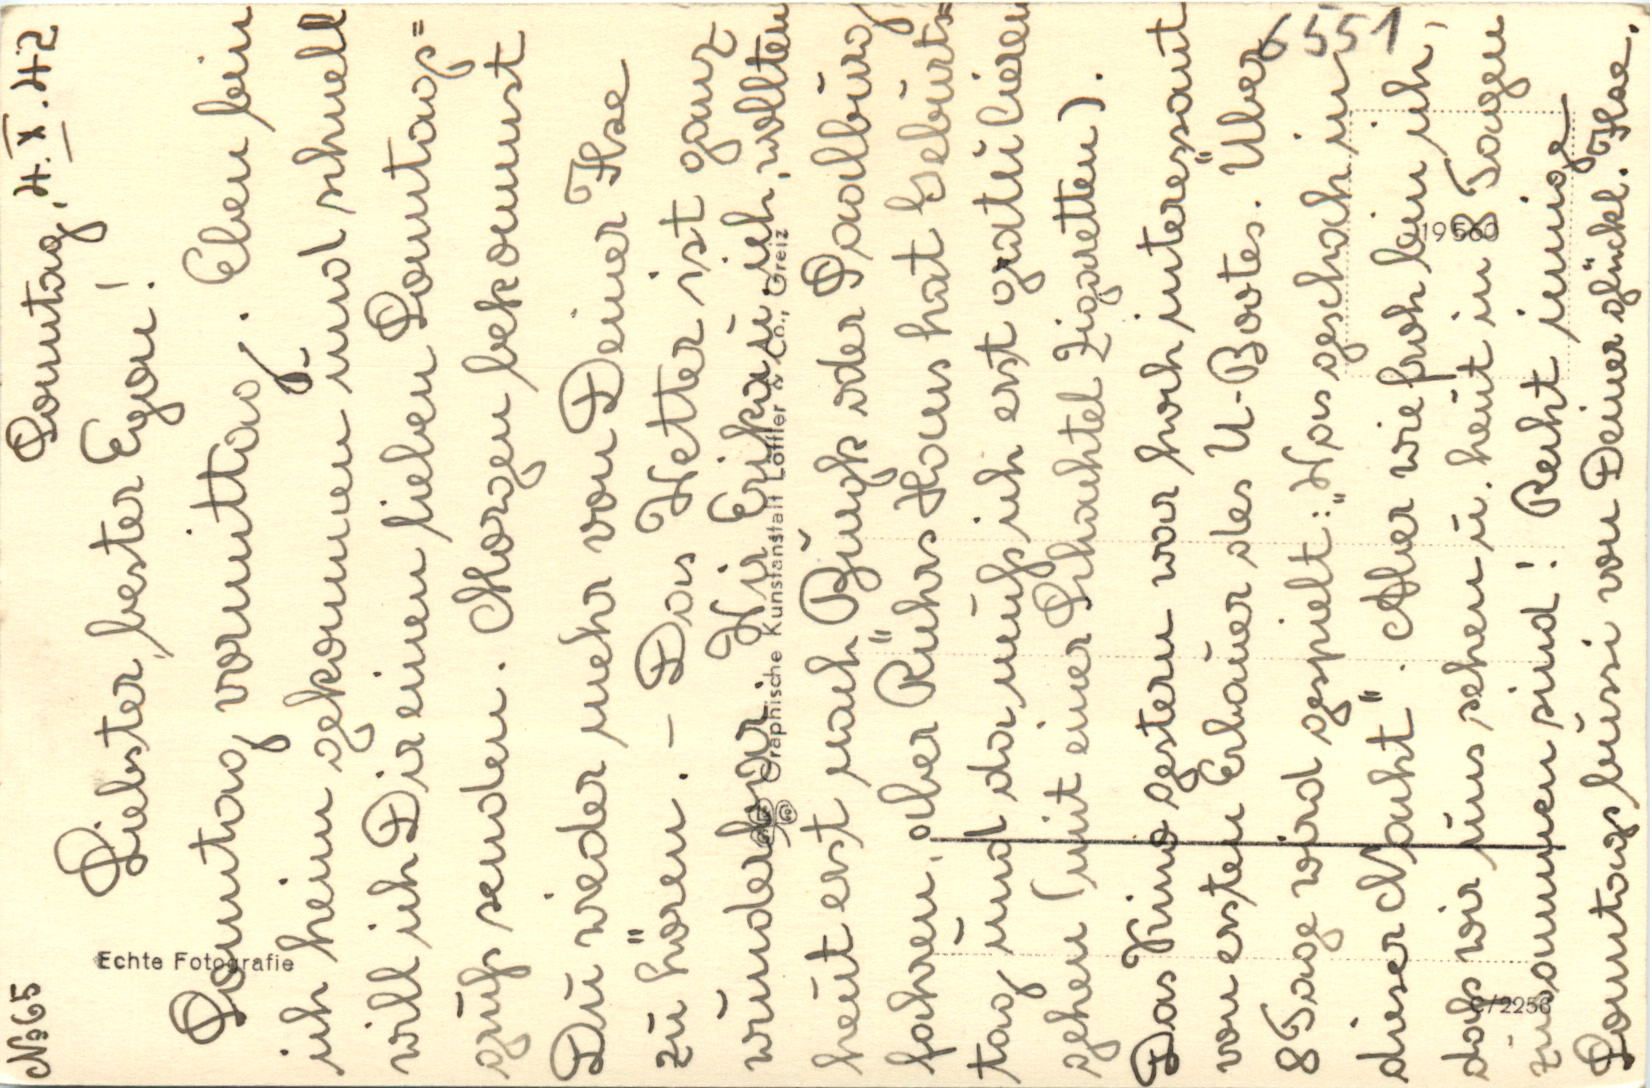 № 65
Sonntag, 4. X. 42
Liebster, bester Egon!
Sonntag vormittag. Eben bin
ich heim gekommen und schnell
will ich Dir einen lieben Sonntags=
gruß senden. Morgen bekommst
Du wieder mehr von Deiner Ilse
zu hören. – Das Wetter ist ganz
wunderbar. Wir, Erika u. ich, wollten
heut erst nach Burgk oder Saalburg
fahren, aber Rührs Hans hat Geburts=
tag und da muß ich erst gratulieren
gehen (mit einer Schachtel Zigaretten).
Das Kino gestern war hoch interessant
vom ersten Erbauer des U-Bootes. Über
8 Tage wird gespielt: „Was geschah in
dieser Nacht". Aber wie froh bin ich,
daß wir uns sehen u. heut in 8 Tagen
zusammen sind! Recht innige
Sonntags bussi von Deiner glückl. Ilse.
Echte Fotografie
Graphische Kunstanstalt Löffler & Co., Greiz
6551
19560
C/2256